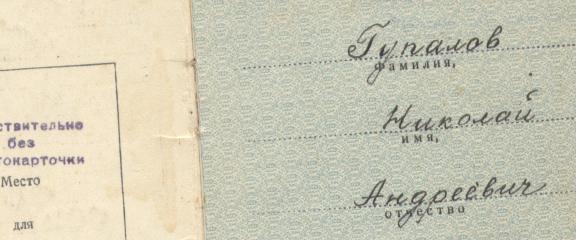 ствительно
без
токарточки
Место
для
Гупалов
фамилия,
Николай
имя,
Андреевич
отчество